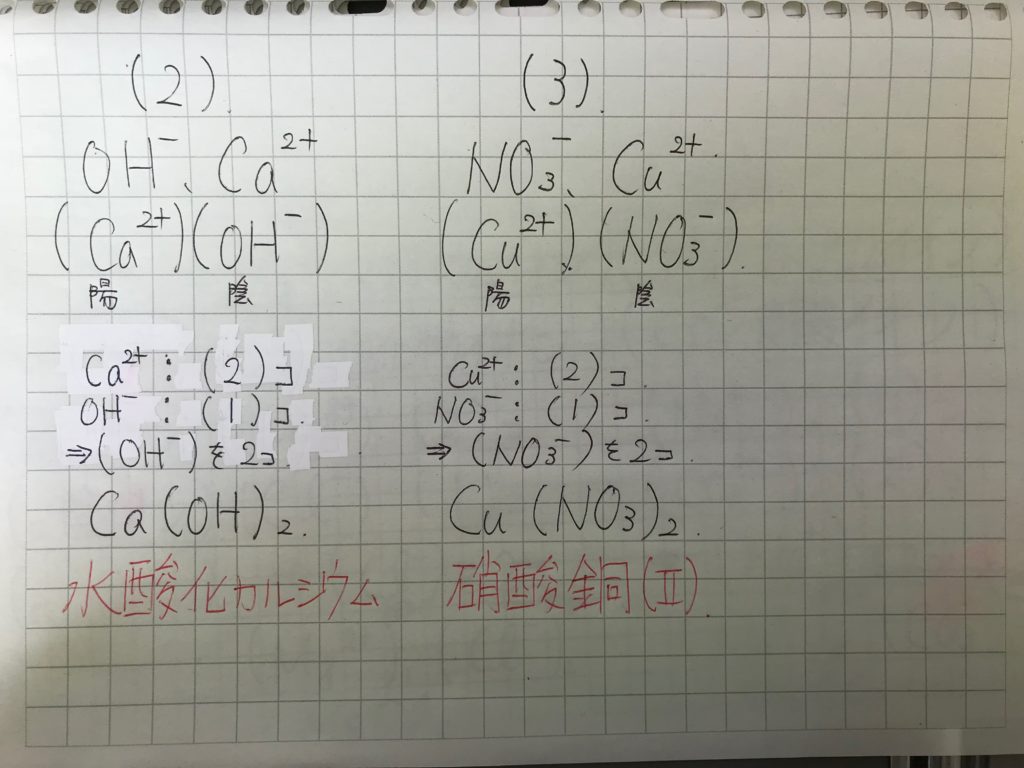 (2).
OH⁻、Ca²⁺
(Ca²⁺)(OH⁻)
陽 陰
Ca²⁺：(2)コ
OH⁻：(1)コ.
⇒(OH⁻)を2コ.
Ca(OH)₂.
水酸化カルシウム
(3).
NO₃⁻、Cu²⁺.
(Cu²⁺)、(NO₃⁻).
陽 陰
Cu²⁺：(2)コ.
NO₃⁻：(1)コ.
⇒(NO₃⁻)を2コ.
Cu(NO₃)₂.
硝酸銅(Ⅱ).